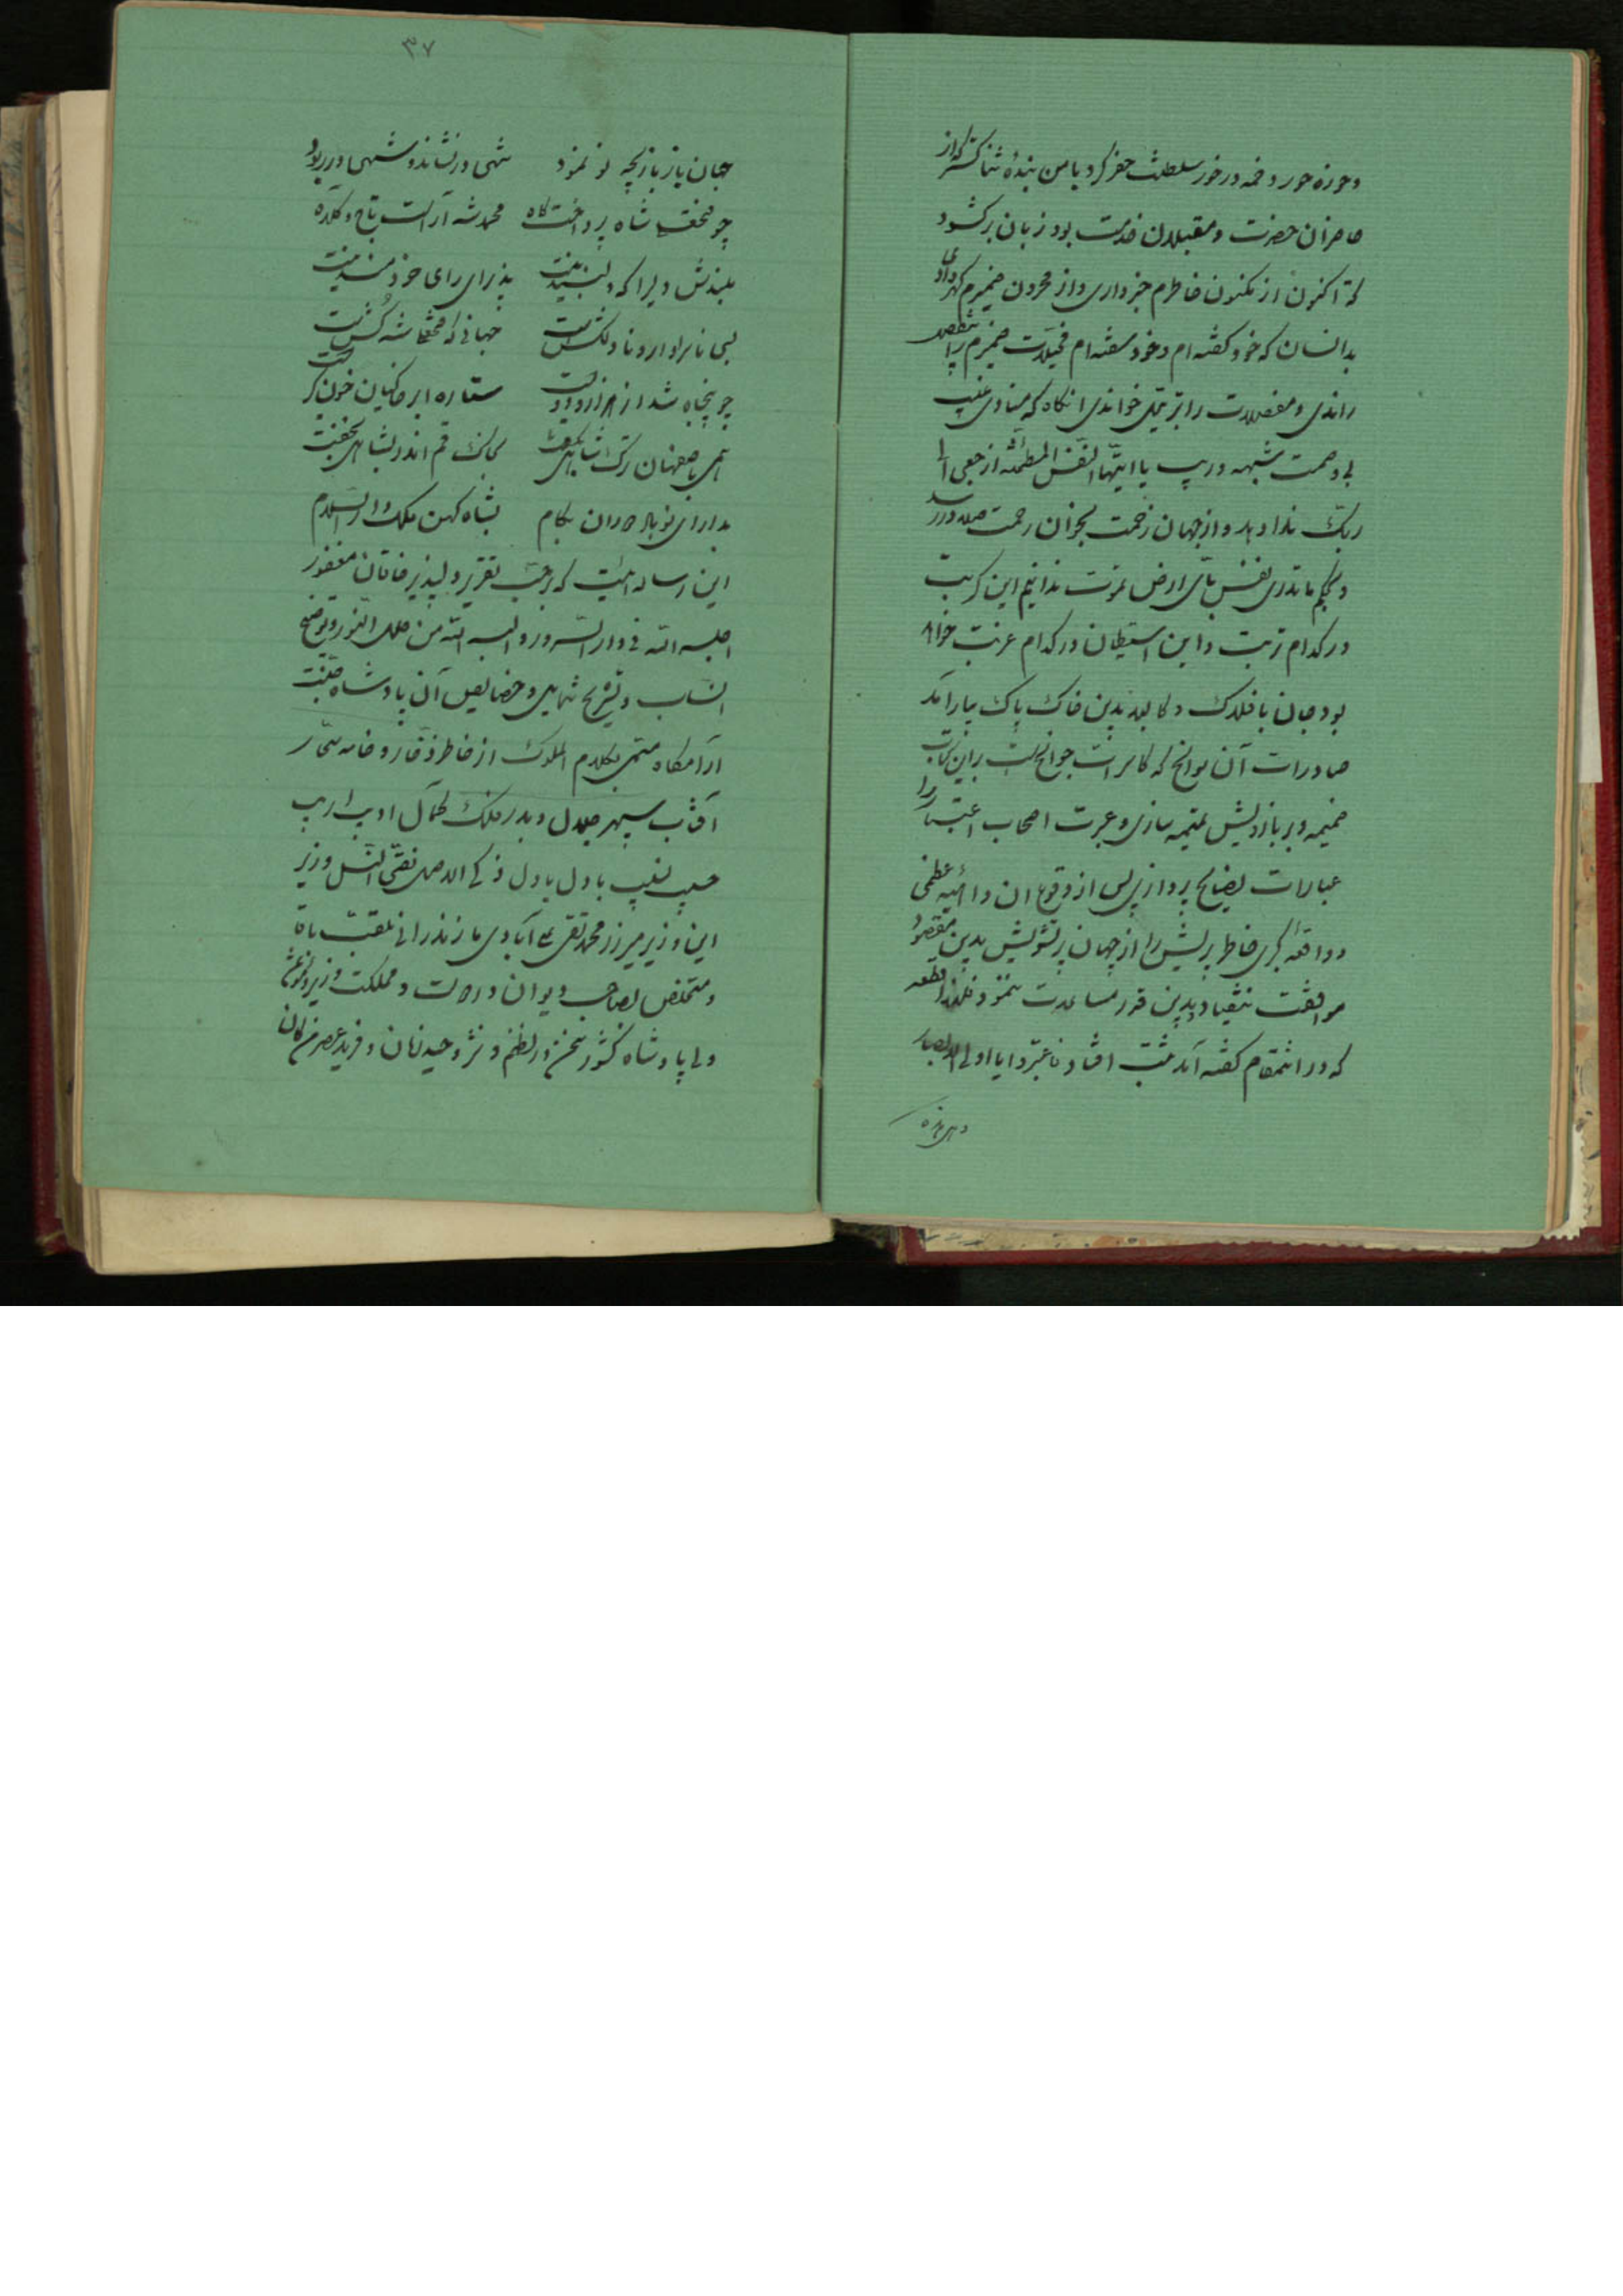 و حوزه حور و خمه در خور سلطنت حفر کرد با من بنده ثنا گستر که از
حاضران حضرت و مقبلان خدمت بود زبان برگشود
که اکنون از مکنون خاطرم خبر داری و از مخزون ضمیرم گهر داری
بدانسان که خود گفته‌ام و خود سفته‌ام مخیلات ضمیرم را بتفصیل
راندی و مفصلات را بترتیل خواندی انگاه که منادی غیب
بی وصمت شبهه و ریب یا ایتها النفس المطمئنه ارجعی الی
ربک ندا دهد و از جهان زحمت بجزان رحمت صلا در رسد
و بحکم ما تدری نفس بای ارض تموت ندانیم این کربت
در کدام تربت و این استیطان در کدام غربت خواهد
بود جان با فلاک و کالبد بدین خاک پاک بیارامد
صادرات آن سوانح که کاسرات جوانح است براین کتاب
ضمیمه و بر بازویش تمیمه سازی و عبرت اصحاب اعتبار را
عبارات بضایح پردازی پس از وقوع ان داهیه عظمی
و واقعه کبری خاطر پریش را از جهان پر تشویش بدین مقصود
موافقت نیفتاد و بدین قدر مساعدت ننمود فلهذا قطعه
که در انمقام گفته آمد مثبت افتاد فاعتبروا یا اولی الابصار
و هی هذه
۳۷
جهان باز بازیچه نو نمود شهی در نشاند و شهی در ربود
چو فتحعلی شاه پرداخت گاه محمد شه آراست تاج و کلاه
بلندش دلیرا که دلبند نیست پذیرای رای خردمند نیست
بسی نابراد ار و نادلکش است جهانی که فتحعلیشه کش است
چو پنجاه شد از هزار و دویست ستاره ابر خاکیان خون گریست
همی باصفهان ترک شاهی بگفت بخاک قم اندر بشاهی بخفت
بدارای نو باد دوران بکام بشاه کهن ملک دار السلام
این رساله ایست که بر حسب تقریر دلپذیر خاقان مغفور
اجلسه الله فی دار السرور و البسه الله من حلل النور و توضیح
انساب و تشریح شمایل و خصایص آن پادشاه جنت
آرامگاه مسمی بکلام الملوک از خاطر وقار و خامه سحار
آفتاب سپهر جلال و بدر فلک کمال ادیب اریب
حسیب نقیب باذل بادل ذکی الاصل نقی النسل وزیر
ابن وزیر میرزا محمد تقی علی آبادی مازندرانی ملقب باقا
و متخلص بصاحب دیوان در دولت و مملکت وزیر
ولی پادشاه کشور سخن در نظم و نثر وحید زمان و فرید عصر